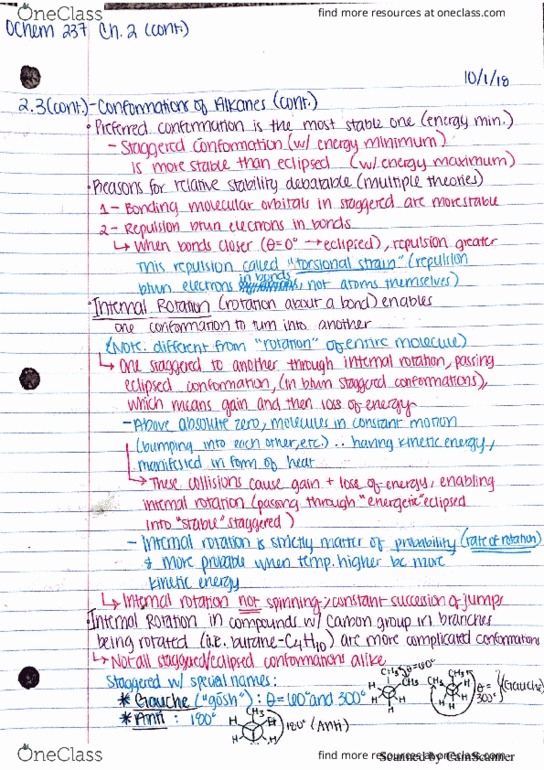 OneClass
find more resources at oneclass.com
OChem 237 Ch. 2 (cont.)
10/1/18
2.3(cont.)-Conformations of Alkanes (cont.)
• Preferred conformation is the most stable one (energy min.)
- Staggered conformation (w/ energy minimum)
is more stable than eclipsed (w/ energy maximum)
• Reasons for relative stability debatable (multiple theories)
1- Bonding molecular orbitals in staggered are more stable
2- Repulsion btwn electrons in bonds
↳ When bonds closer (θ=0° → eclipsed), repulsion greater
This repulsion called "torsional strain" (repulsion
btwn electrons in bonds, not atoms themselves)
• Internal Rotation (rotation about a bond) enables
one conformation to turn into another
(Note: different from "rotation" of entire molecule)
↳ One staggered to another through internal rotation, passing
eclipsed conformation, (in btwn staggered conformations),
which means gain and then loss of energy
- Above absolute zero, molecules in constant motion
(bumping into each other, etc.) ∴ having kinetic energy,
manifested in form of heat
↳ These collisions cause gain + loss of energy, enabling
internal rotation (passing through "energetic" eclipsed
into "stable" staggered)
- Internal rotation is strictly matter of probability (rate of rotation)
& more probable when temp. higher bc more
kinetic energy
↳ Internal rotation not spinning; constant succession of jumps
• Internal Rotation in compounds w/ carbon group in branches
being rotated (i.e. butane-C4H10) are more complicated conformations
↳ Not all staggered/eclipsed conformations alike
Staggered w/ special names:
* Gauche ("gōsh"): θ=60° and 300°
CH3 θ=60°
CH3
CH3
H
H
H
θ=300°
(Gauche)
* Anti: 180°
CH3
H
H
H
H
CH3
180° (Anti)
OneClass
find more resources at oneclass.com
Scanned by CamScanner